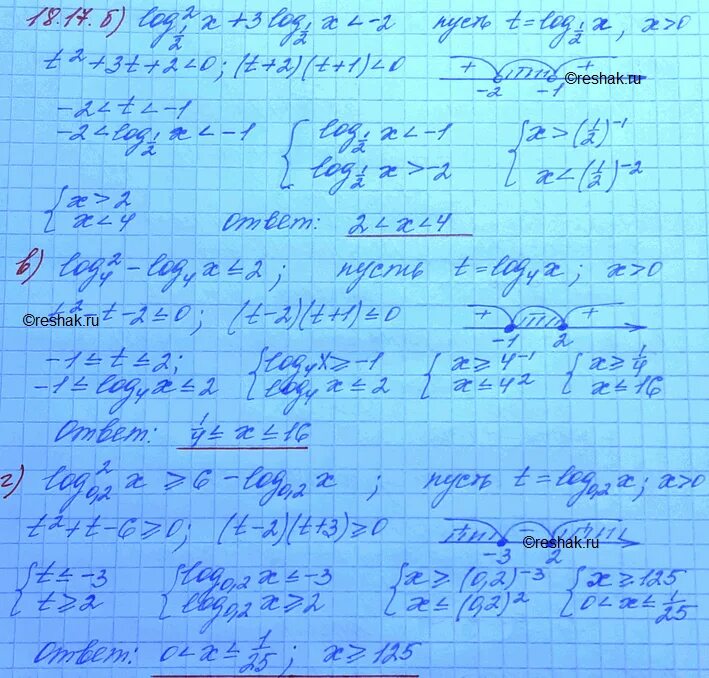 18.17. б) log²_{1/2} x + 3 log_{1/2} x < -2   пусть t = log_{1/2} x, x>0
t² + 3t + 2 < 0; (t+2)(t+1) < 0   +   -2   -1   +   ©reshak.ru
-2 < t < -1
-2 < log_{1/2} x < -1   { log_{1/2} x < -1   log_{1/2} x > -2   { x > (1/2)^{-1}   x < (1/2)^{-2}
{ x > 2   x < 4   ответ: 2 < x < 4
в) log²_4 - log_4 x ≤ 2;   пусть t = log_4 x; x>0
t² - t - 2 ≤ 0; (t-2)(t+1) ≤ 0   +   -1   2   +
©reshak.ru
-1 ≤ t ≤ 2;   { log_4 x ≥ -1   { x ≥ 4^{-1}   { x ≥ 1/4
-1 ≤ log_4 x ≤ 2   log_4 x ≤ 2   x ≤ 4²   x ≤ 16
Ответ: 1/4 ≤ x ≤ 16
г) log²_{0,2} x ≥ 6 - log_{0,2} x;   пусть t = log_{0,2} x; x>0
t² + t - 6 ≥ 0; (t-2)(t+3) ≥ 0   +   -3   -   2   ©reshak.ru
{ t ≤ -3   { log_{0,2} x ≤ -3   { x ≥ (0,2)^{-3}   { x ≥ 125
t ≥ 2   log_{0,2} x ≥ 2   x ≤ (0,2)²   0 < x ≤ 1/25
ответ: 0 < x ≤ 1/25; x ≥ 125